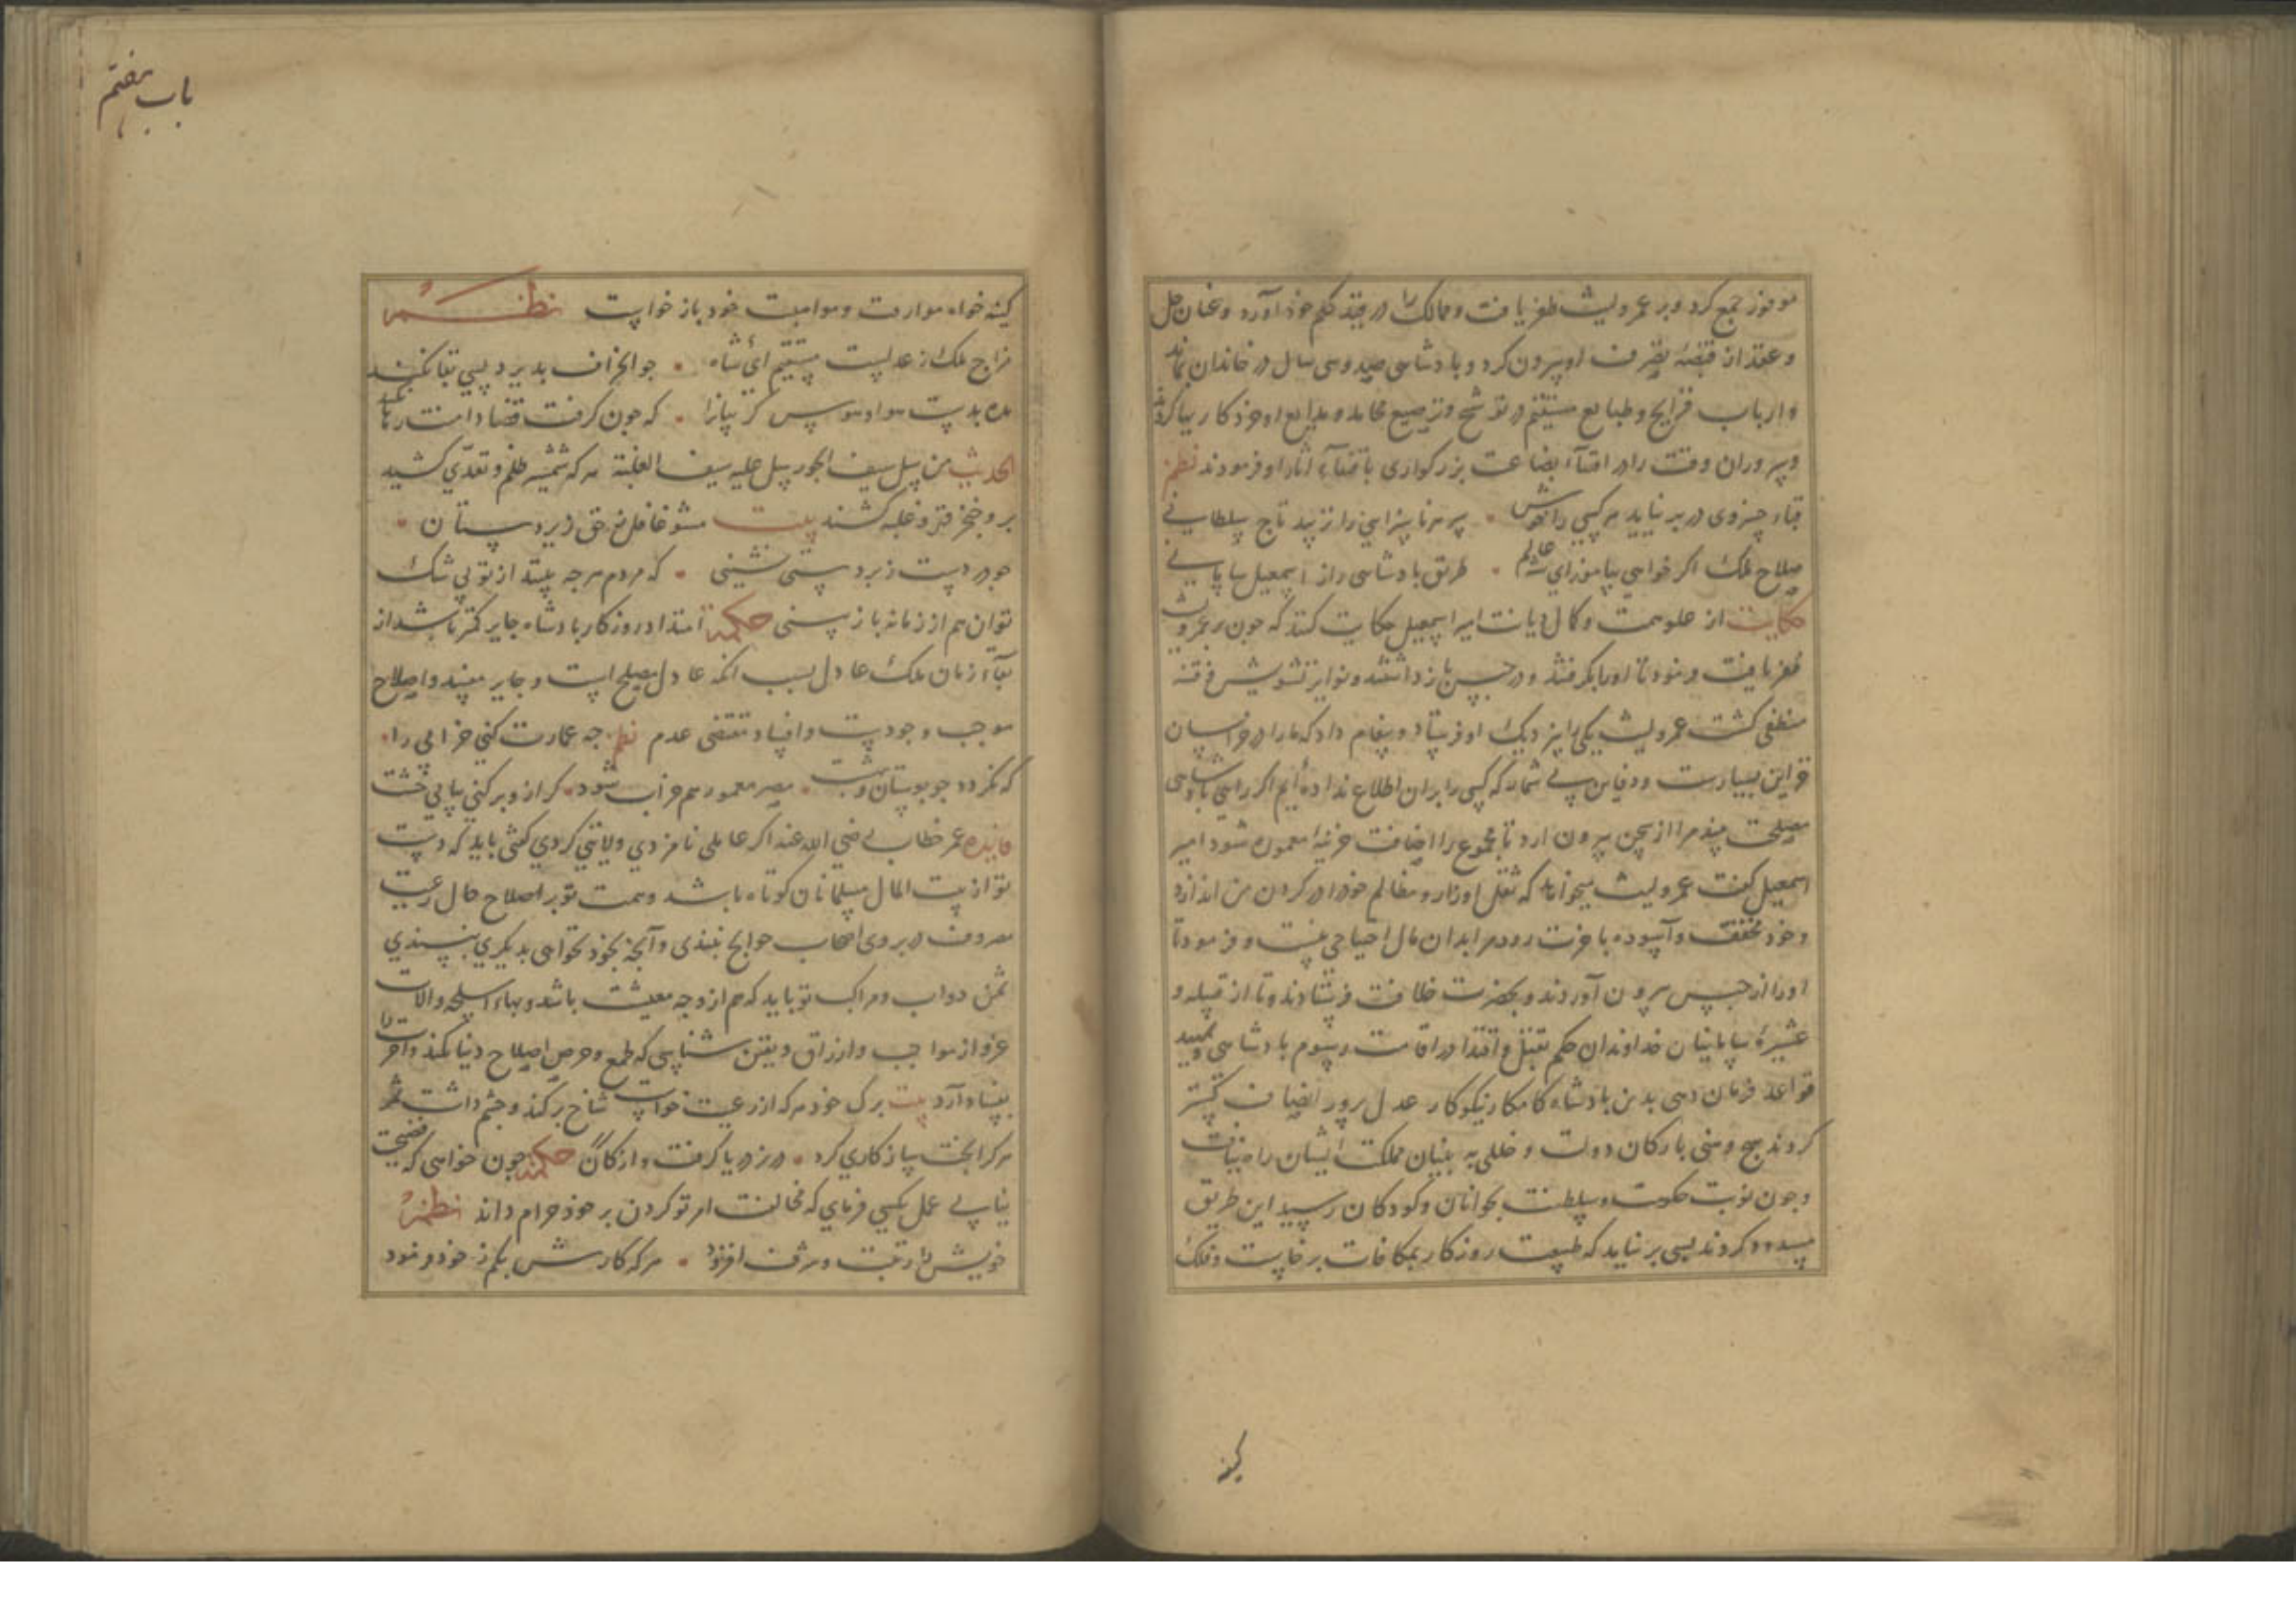 موفور جمع کرد و بر عمرو لیث ظفر یافت و ممالک را در قید حکم خود آورد و عنان حل
و عقد از قبضهٔ تصرف او بیرون کرد و بادشاهی صد و سی سال در خاندان بماند
و ارباب قرایح و طبایع مستقیم در توشیح و ترصیع محامد و بدایع او خود کار
و سروران وقت را در اقتنآء بضاعت بزرکواری باقتفآء آثار او فرمودند نظم
قباء خسروی در بر نیاید هر کسی را خوش • بسر هر ناسزایی را نزیبد تاج سلطانی
صلاح ملک اکر خواهی بیاموز ای شه عالم • طریق بادشاهی را از اسمعیل سامانی
حکایت از علو همت و کمال دیانت امیر اسمعیل حکایت کنند که جون بر عمرو لیث
ظفر یافت فرمود تا او را بکرفتند و در حبس باز داشتند و نوایر تشویش و فتنه
منطفی کشت عمرو لیث یکی را بنزدیک او فرستاد و پیغام داد که ما را در خراسان
خزاین بسیارست و دفاین بی شمار که کسی را بران اطلاع نداده ایم اکر رای بادشاهی
مصلحت بیند مرا از سجن بیرون ارد تا مجموع را اضافت خزینهٔ معموره شود امیر
اسمعیل کفت عمرو لیث میخواهد که ثقل اوزار و مظالم خود را در کردن من اندازد
و خود مخفف و آسوده باخرت رود مرا بدان مال احتیاجی نیست و فرمود تا
او را از حبس بیرون آوردند و بحضرت خلافت فرستادند و تا از قبیله و
عشیرهٔ سامانیان خداوندان حکم تقبل و اقتدا در اقامت رسوم بادشاهی و تمهید
قواعد فرمان دهی بدین بادشاه کامکار نیکوکار عدل پرور انصاف کستر
کردند هیج وهنی بارکان دولت و خللی به بنیان مملکت ایشان راه نیافت
و جون نوبت حکومت و سلطنت بجوانان و کودکان رسید این طریق
مسدود کردند بسی بر نیاید که طبیعت روزکار بمکافات برخاست و فلک
کینه
باب هفتم
کینه خواه موارفت و مواهبت خود باز خواست نظم
مزاج ملک ز عدلست مستقیم ای شاه • جو انحراف بذیرد بسی بقا نکند
مده بدست هوا و هوس کریبانرا • که جون کرفت قضا دامنت رها نکند
الحدیث من سل سیف الجور سل علیه سیف الغلبة هر که شمشیر ظلم و تعدّی کشید
برو خنجر قهر و غلبه کشند بیت مشو غافل ز حق زیردستان •
جو در دست زبردستی نشینی • که مردم هرجه بیند از تو بی شک
توان هم از زمانه باز بینی حکمة امتداد روزکار بادشاه جایر کمتر باشد از
بقآء زمان ملک عادل بسبب انکه عادل مصلح است و جایر مفسد و اصلاح
موجب وجودست و افساد مقتضی عدم نظم جه عمارت کنی خرابی را •
که نکردد جو بوستان بهشت • مصر معمور هم خراب شود • کر ازو بر کنی بیابی خشت
فایده عمر خطاب رضی الله عنه اکر عاملی نامزدی ولایتی کردی کفتی باید که دست
تو از بیت المال مسلمانان کوتاه باشد و همت تو بر اصلاح حال رعیت
مصروف در بروی اصحاب حوایج نبندی و آنجه بخود نخواهی بدیکری نپسندی
ثمن دواب و مراکب تو باید که هم از وجه معیشت باشد و بهاء اسلحه و الات
غزو از مواجب و ارزاق و یقین شناسی که طمع و حرص اصلاح دنیا نکند و آخرت را
بفساد آرد بیت برک خود هر که از رعیت خواست شاخ بر کند و جشم داشت ثمر
هر کرا بخت سازکاری کرد • در ز دریا کرفت و از کان حکمة جون خواهی که فضیحت
نیابی عمل بکسی فرمای که مخالفت امر تو کردن بر خود حرام داند نظم
خویش را رتبت و شرف افزود • هر که کارش بکم ز خود فرمود